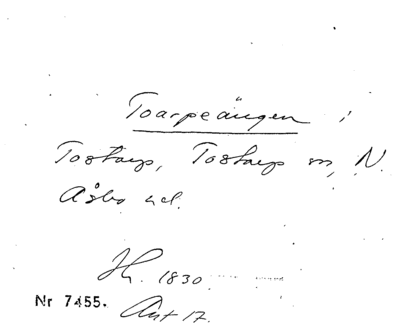 Toarpeängen i
Tostarp, Tostarp sn, N.
Åsbo hd.
1830
Nr 7455.
Akt 17.